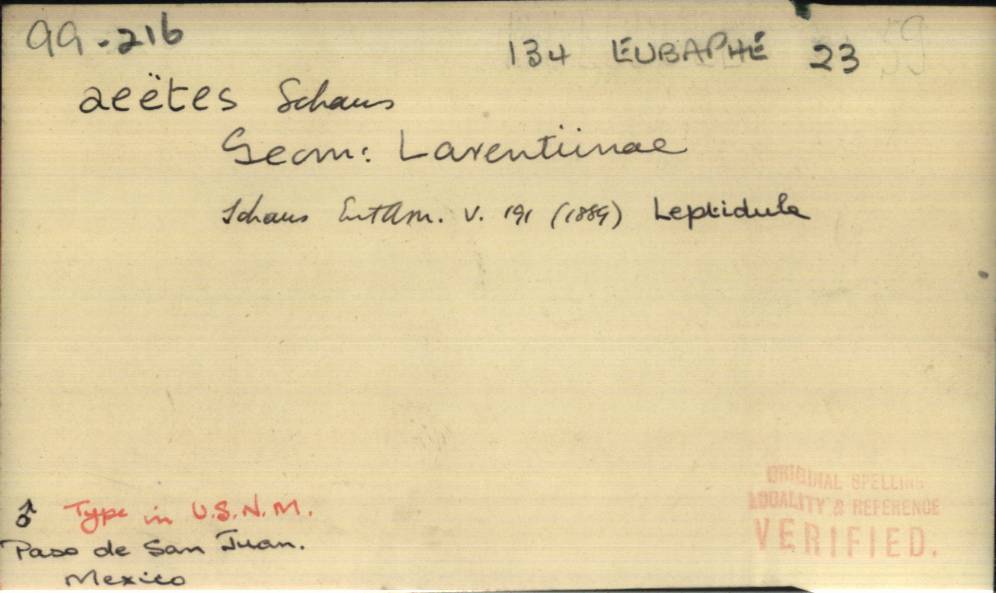 99-216
134 EUBAPHE 23
aeëtes Schaus
Geom: Larentiinae
Schaus Ent Am. V. 191 (1889) Leptidule
♂ Type in U.S.N.M.
Paso de San Juan.
Mexico
ORIGINAL SPELLING
LOCALITY & REFERENCE
VERIFIED.